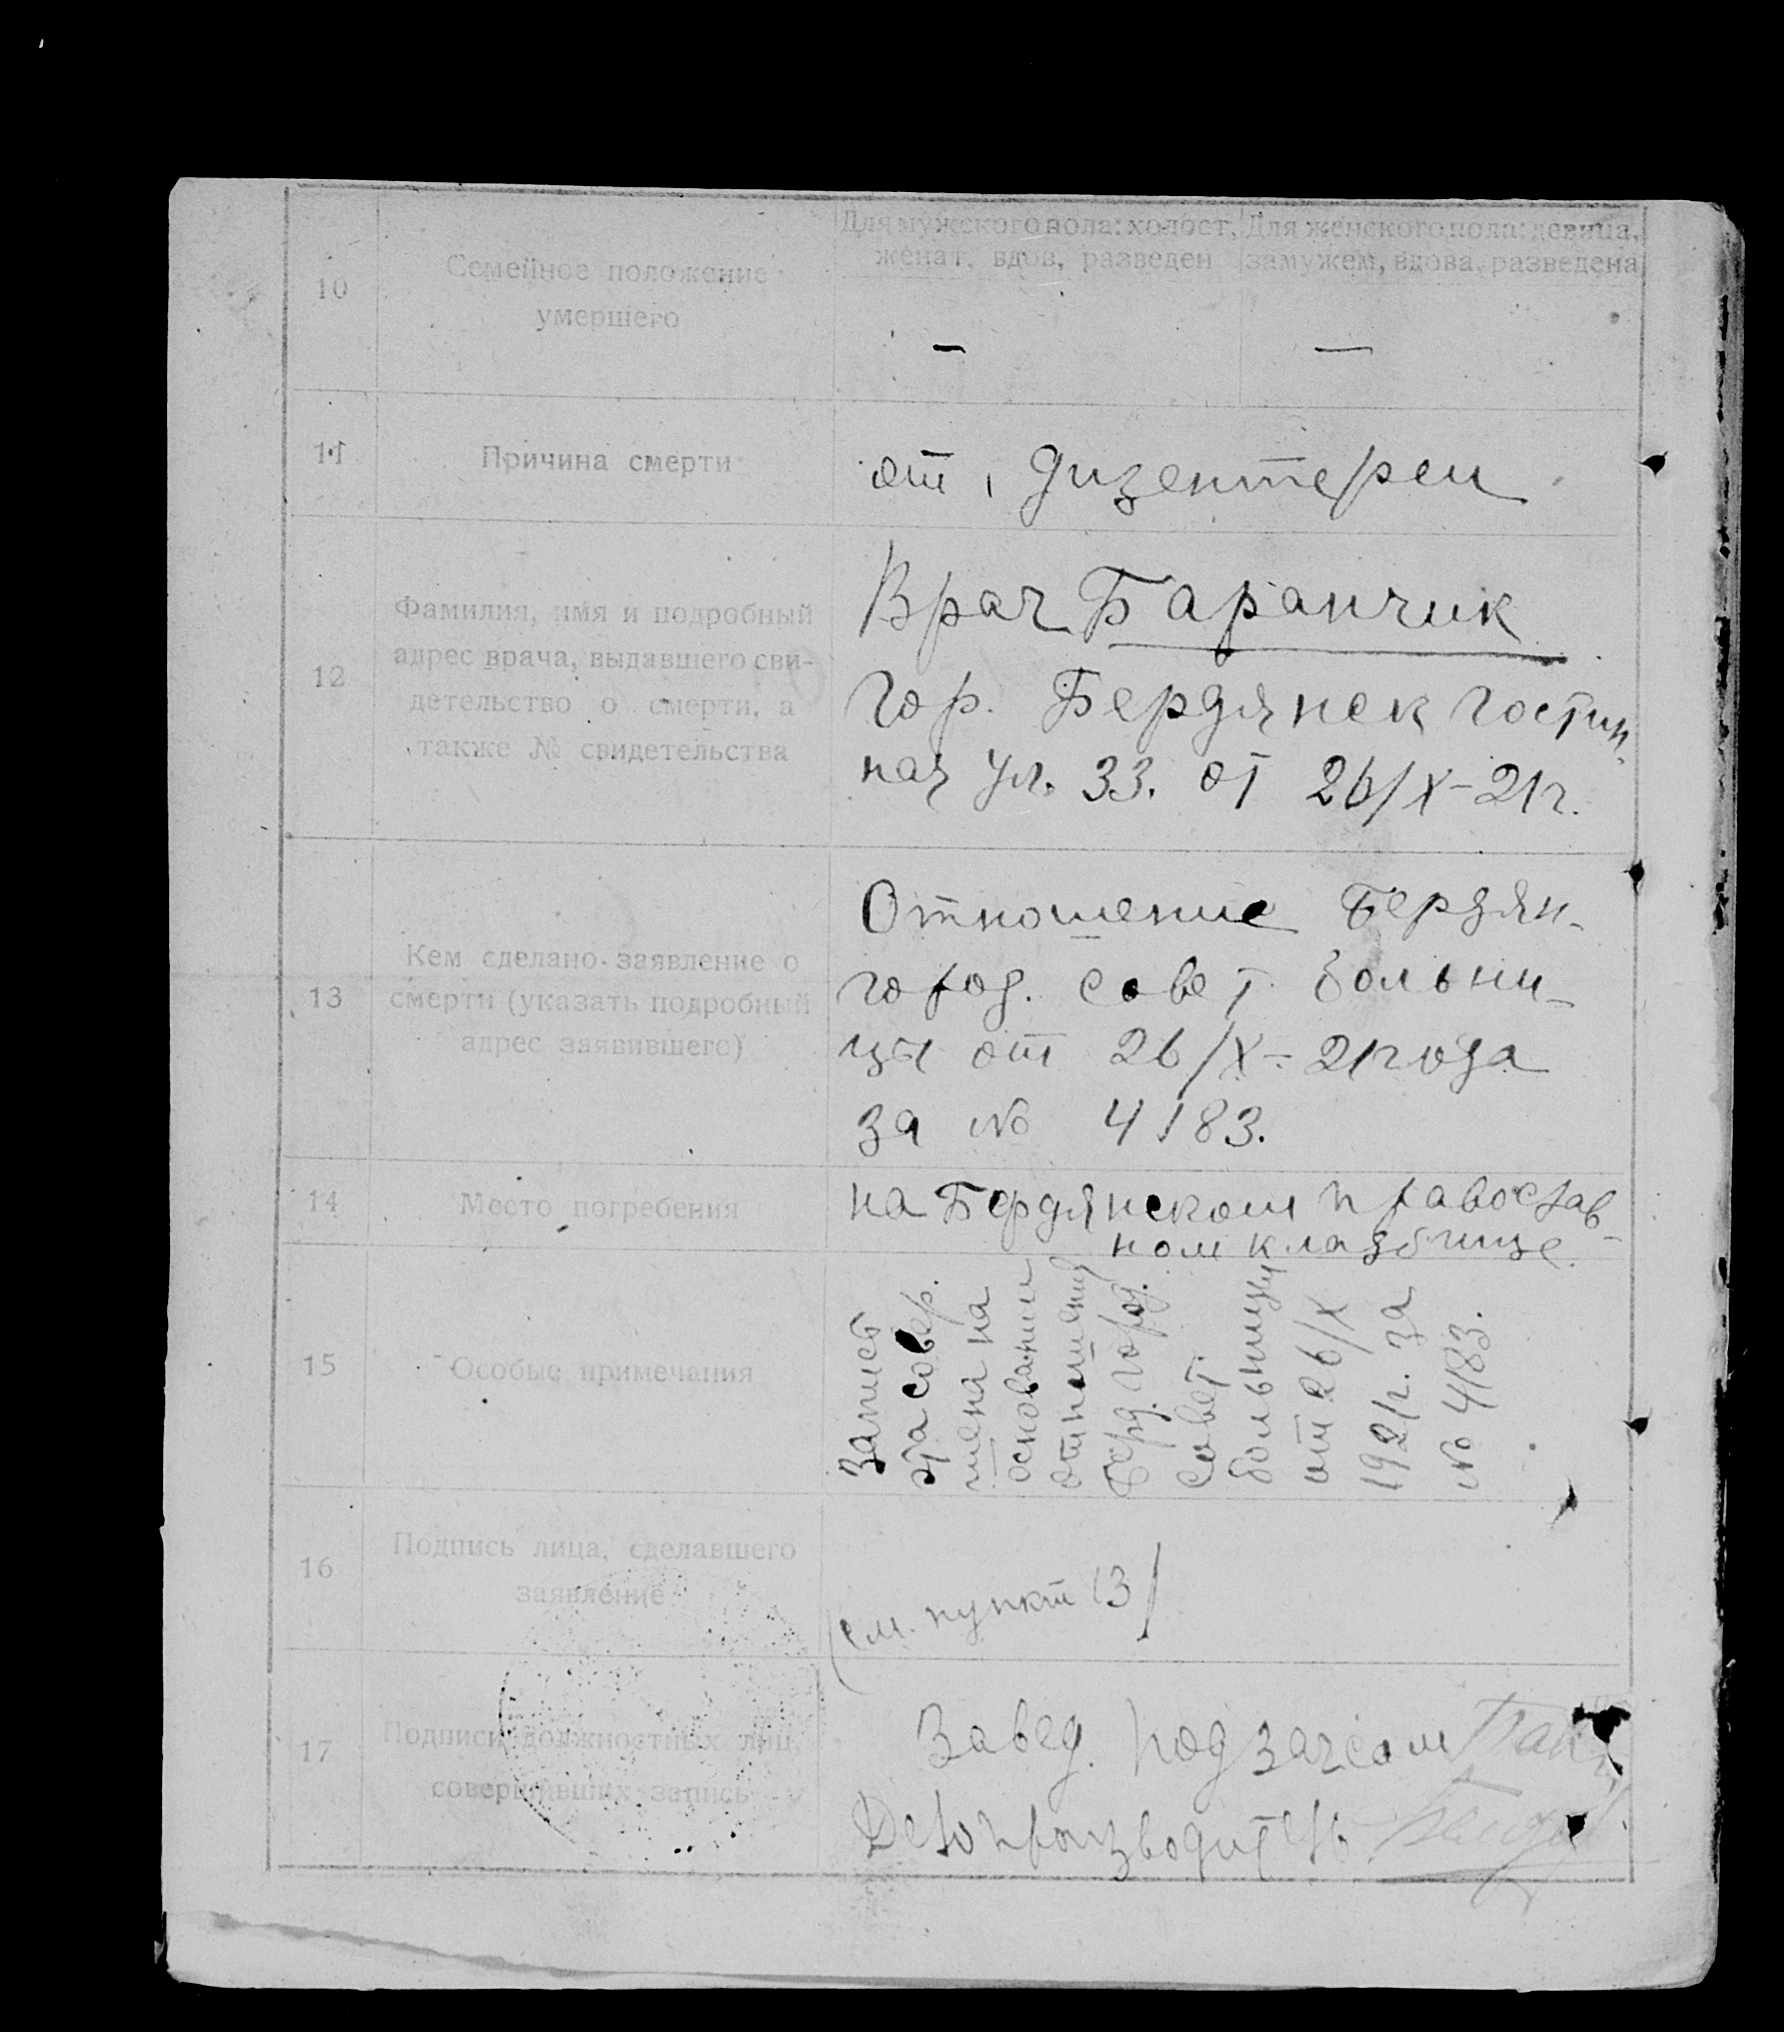 10
Семейное положение
умершего
Для мужского пола: холост,
женат, вдов, разведен
Для женского пола: девица,
замужем, вдова, разведена
—
—
11
Причина смерти
от, дизентереи
12
Фамилия, имя и подробный
адрес врача, выдавшего сви-
детельство о смерти, а
также № свидетельства
Врач Баранчик
гор. Бердянск Гостин-
ная ул. 33. от 26/X-21г.
13
Кем сделано заявление о
смерти (указать подробный
адрес заявившего)
Отношение Бердян-
город. совет. больни-
цы от 26/X-21года
за № 4183.
14
Место погребения
на Бердянском православ-
ном кладбище.
15
Особые примечания
Запись
эта совер.
шена на
основании
отношения
Берд. город.
совет.
больницы
от 26/X
1921г. за
№ 4183.
16
Подпись лица, сделавшего
заявление
(см. пункт 13/
17
Подписи должностных лиц,
совершивших запись
Завед. Подзагсом
Делопроизводитель